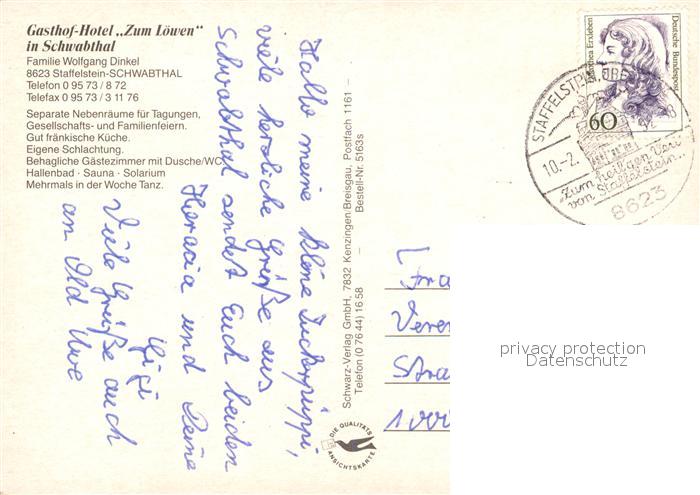 Gasthof-Hotel „Zum Löwen"
in Schwabthal
Familie Wolfgang Dinkel
8623 Staffelstein-SCHWABTHAL
Telefon 0 95 73 / 8 72
Telefax 0 95 73 / 3 11 76
Separate Nebenräume für Tagungen,
Gesellschafts- und Familienfeiern.
Gut fränkische Küche.
Eigene Schlachtung.
Behagliche Gästezimmer mit Dusche/WC
Hallenbad · Sauna · Solarium
Mehrmals in der Woche Tanz.
Hallo meine kleine Zuckerpuppi,
viele herzliche Grüße aus
Schwabthal sendet Euch beiden
und Deine
Gigi
Viele Grüße auch
an Old Uwe
Schwarz-Verlag GmbH, 7832 Kenzingen/Breisgau, Postfach 1161 –
Telefon (0 76 44) 16 58 – Bestell-Nr. 5163s
DIE QUALITÄTS
ANSICHTSKARTE
Dorothea Erxleben
Deutsche Bundespost
60
STAFFELSTEIN, OBE
10.-2.
„Zum heil'gen Veit
von Staffelstein...
8623
Fra
Veren
Stra
1000
privacy protection
Datenschutz